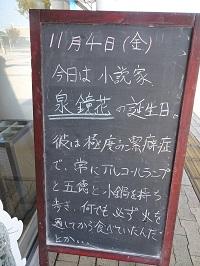 11月4日(金)
今日は小説家
泉鏡花の誕生日。
彼は極度の潔癖症
で、常にアルコールランプ
と五徳と小鍋を持ち
歩き、何でも必ず火を
通してから食べていたんだ
とか...